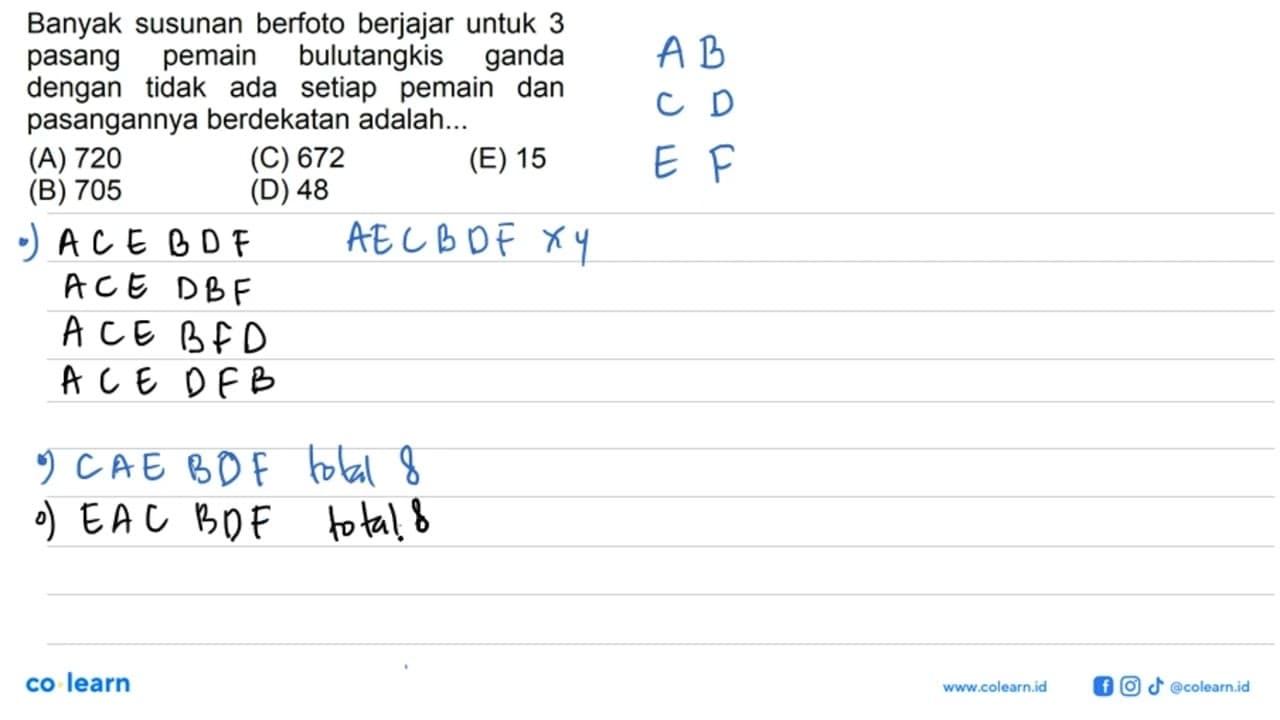 Banyak susunan berfoto berjajar untuk 3
pasang pemain bulutangkis ganda
dengan tidak ada setiap pemain dan
pasangannya berdekatan adalah...
(A) 720 (C) 672 (E) 15
(B) 705 (D) 48
A B
C D
E F
•) A C E B D F A E C B D F x 4
A C E D B F
A C E B F D
A C E D F B
•) C A E B D F total 8
•) E A C B D F total 8
co learn
www.colearn.id @colearn.id